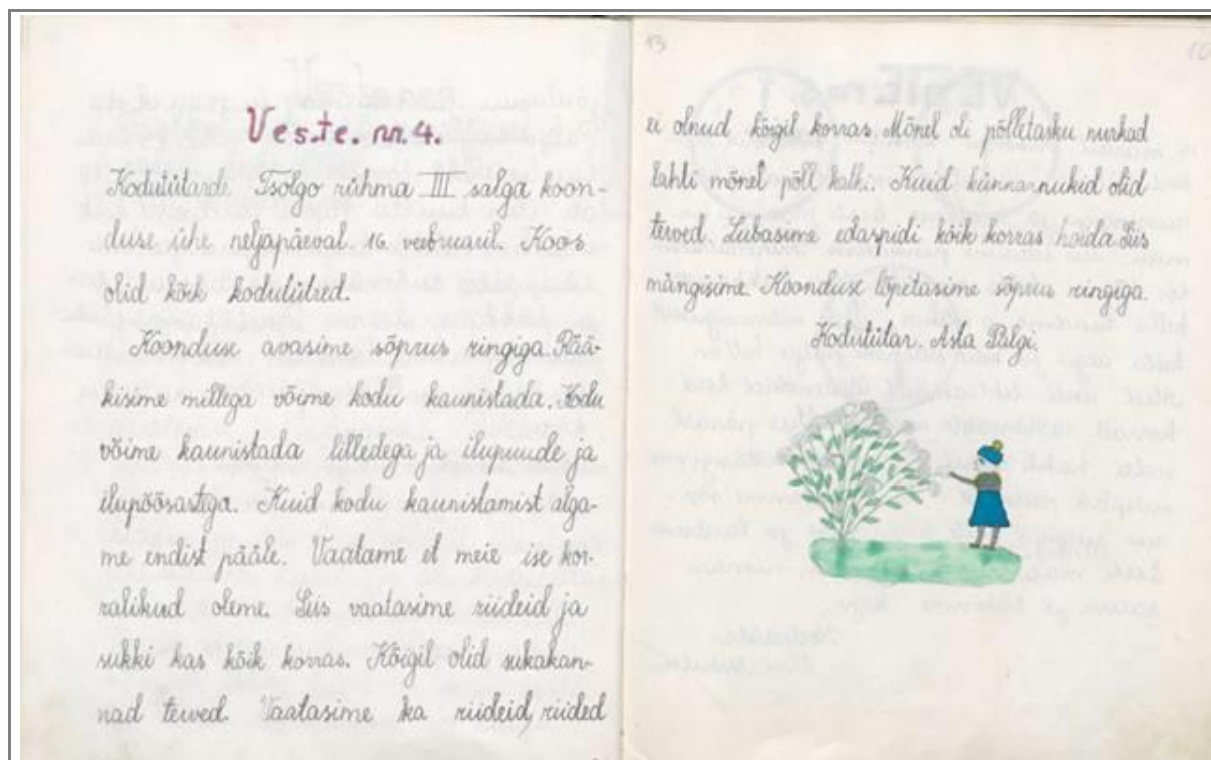 Veste. nr. 4.
Kodutütarde Tsolgo rühma III salga koon-
duse ühe neljapäeval 16. veebruaril. Koos
olid kõik kodutütred.
Koonduse avasime sõprus ringiga. Rää-
kisime millega võime kodu kaunistada. Kodu
võime kaunistada lilledega ja ilupuude ja
ilupõõsastega. Kuid kodu kaunistamist alga-
me endist pääle. Vaatame et meie ise kor-
ralikud oleme. Siis vaatasime riideid ja
sukki kas kõik korras. Kõigil olid sukakan-
nad terved. Vaatasime ka riideid, riided
13
10
ei olnud kõigil korras. Mõnel oli põlletasku nurkad
lahti mõnel põll katki. Kuid künnarnukid olid
terved. Lubasime edaspidi kõik korras hoida. Siis
mängisime. Koonduse lõpetasime sõprus ringiga.
Kodutütar. Asta Palgi.